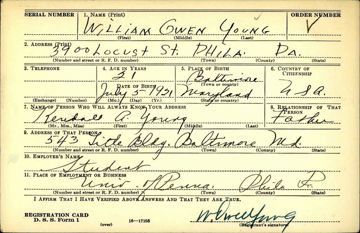 SERIAL NUMBER 1. NAME (Print) ORDER NUMBER
WILLIAM OWEN YOUNG
(First) (Middle) (Last)
2. ADDRESS (Print)
3900 LOCUST ST. PHILA. PA.
(Number and street or R. F. D. number) (Town) (County) (State)
3. TELEPHONE 4. AGE IN YEARS 5. PLACE OF BIRTH 6. COUNTRY OF CITIZENSHIP
21 Baltimore
DATE OF BIRTH (Town or county)
July 5 1921 Maryland USA
(Exchange) (Number) (Mo.) (Day) (Yr.) (State or country)
7. NAME OF PERSON WHO WILL ALWAYS KNOW YOUR ADDRESS 8. RELATIONSHIP OF THAT PERSON
Kendall A. Young Father
(Mr., Mrs., Miss) (First) (Middle) (Last)
9. ADDRESS OF THAT PERSON
Title Bldg Baltimore Md.
(Number and street or R. F. D. number) (Town) (County) (State)
10. EMPLOYER'S NAME
Student
11. PLACE OF EMPLOYMENT OR BUSINESS
Univ. of Penna. Phila Pa.
(Number and street or R. F. D. number) (Town) (County) (State)
I AFFIRM THAT I HAVE VERIFIED ABOVE ANSWERS AND THAT THEY ARE TRUE.
REGISTRATION CARD
D. S. S. Form 1 16—17105
(over) (Registrant's signature)